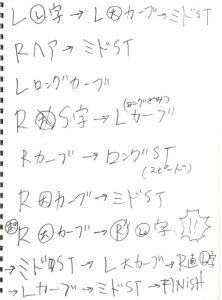 L Ⓛ字 → L ㊅カーブ → ミドST
Rヘア → ミドST
Lロングカーブ
R S字 → Lカーブ
(ロングぎみ)
Rカーブ → ロングST
(スピード)
R 因カーブ → ミドST
R 大カーブ → R Ⓛ字 !!
→ ミドST → L大カーブ → R直Ⓛ字
→ Lカーブ → ミドST → FINISH